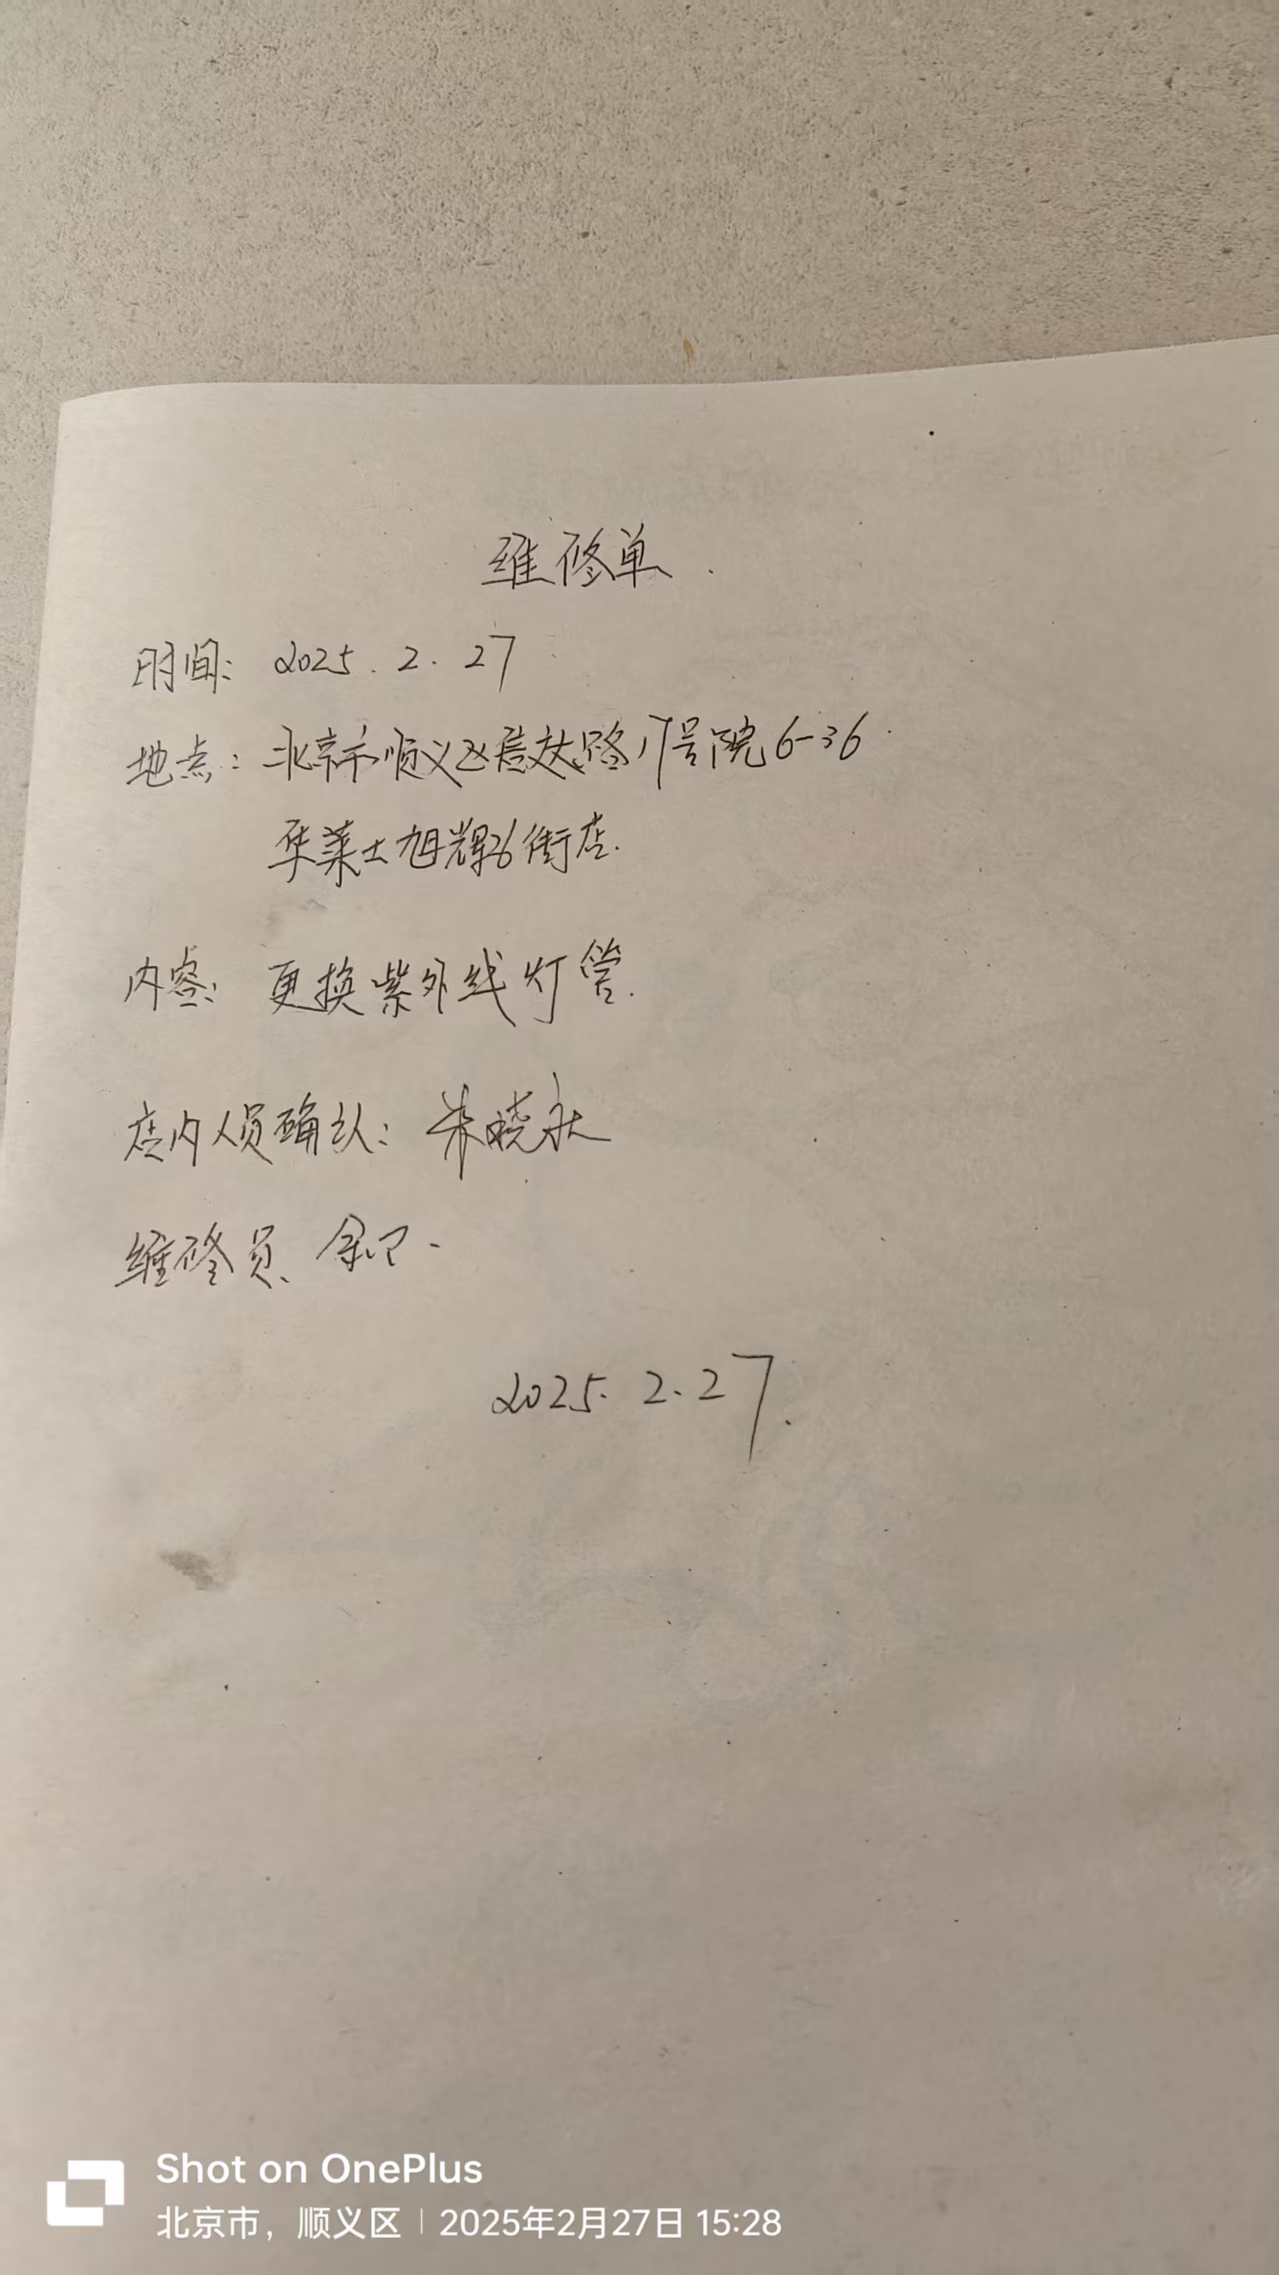 维修单.
时间: 2025.2.27
地点: 北京市顺义区 路 号院6-36
华莱士旭辉26街店.
内容: 更换紫外线灯管.
店内人员确认: 朱晓
维修员、余
2025.2.27.
Shot on OnePlus
北京市，顺义区 | 2025年2月27日 15:28